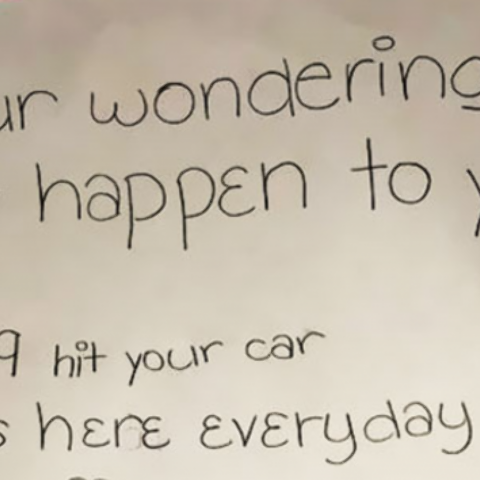 ur wondering
happen to y
9 hit your car
s here everyday